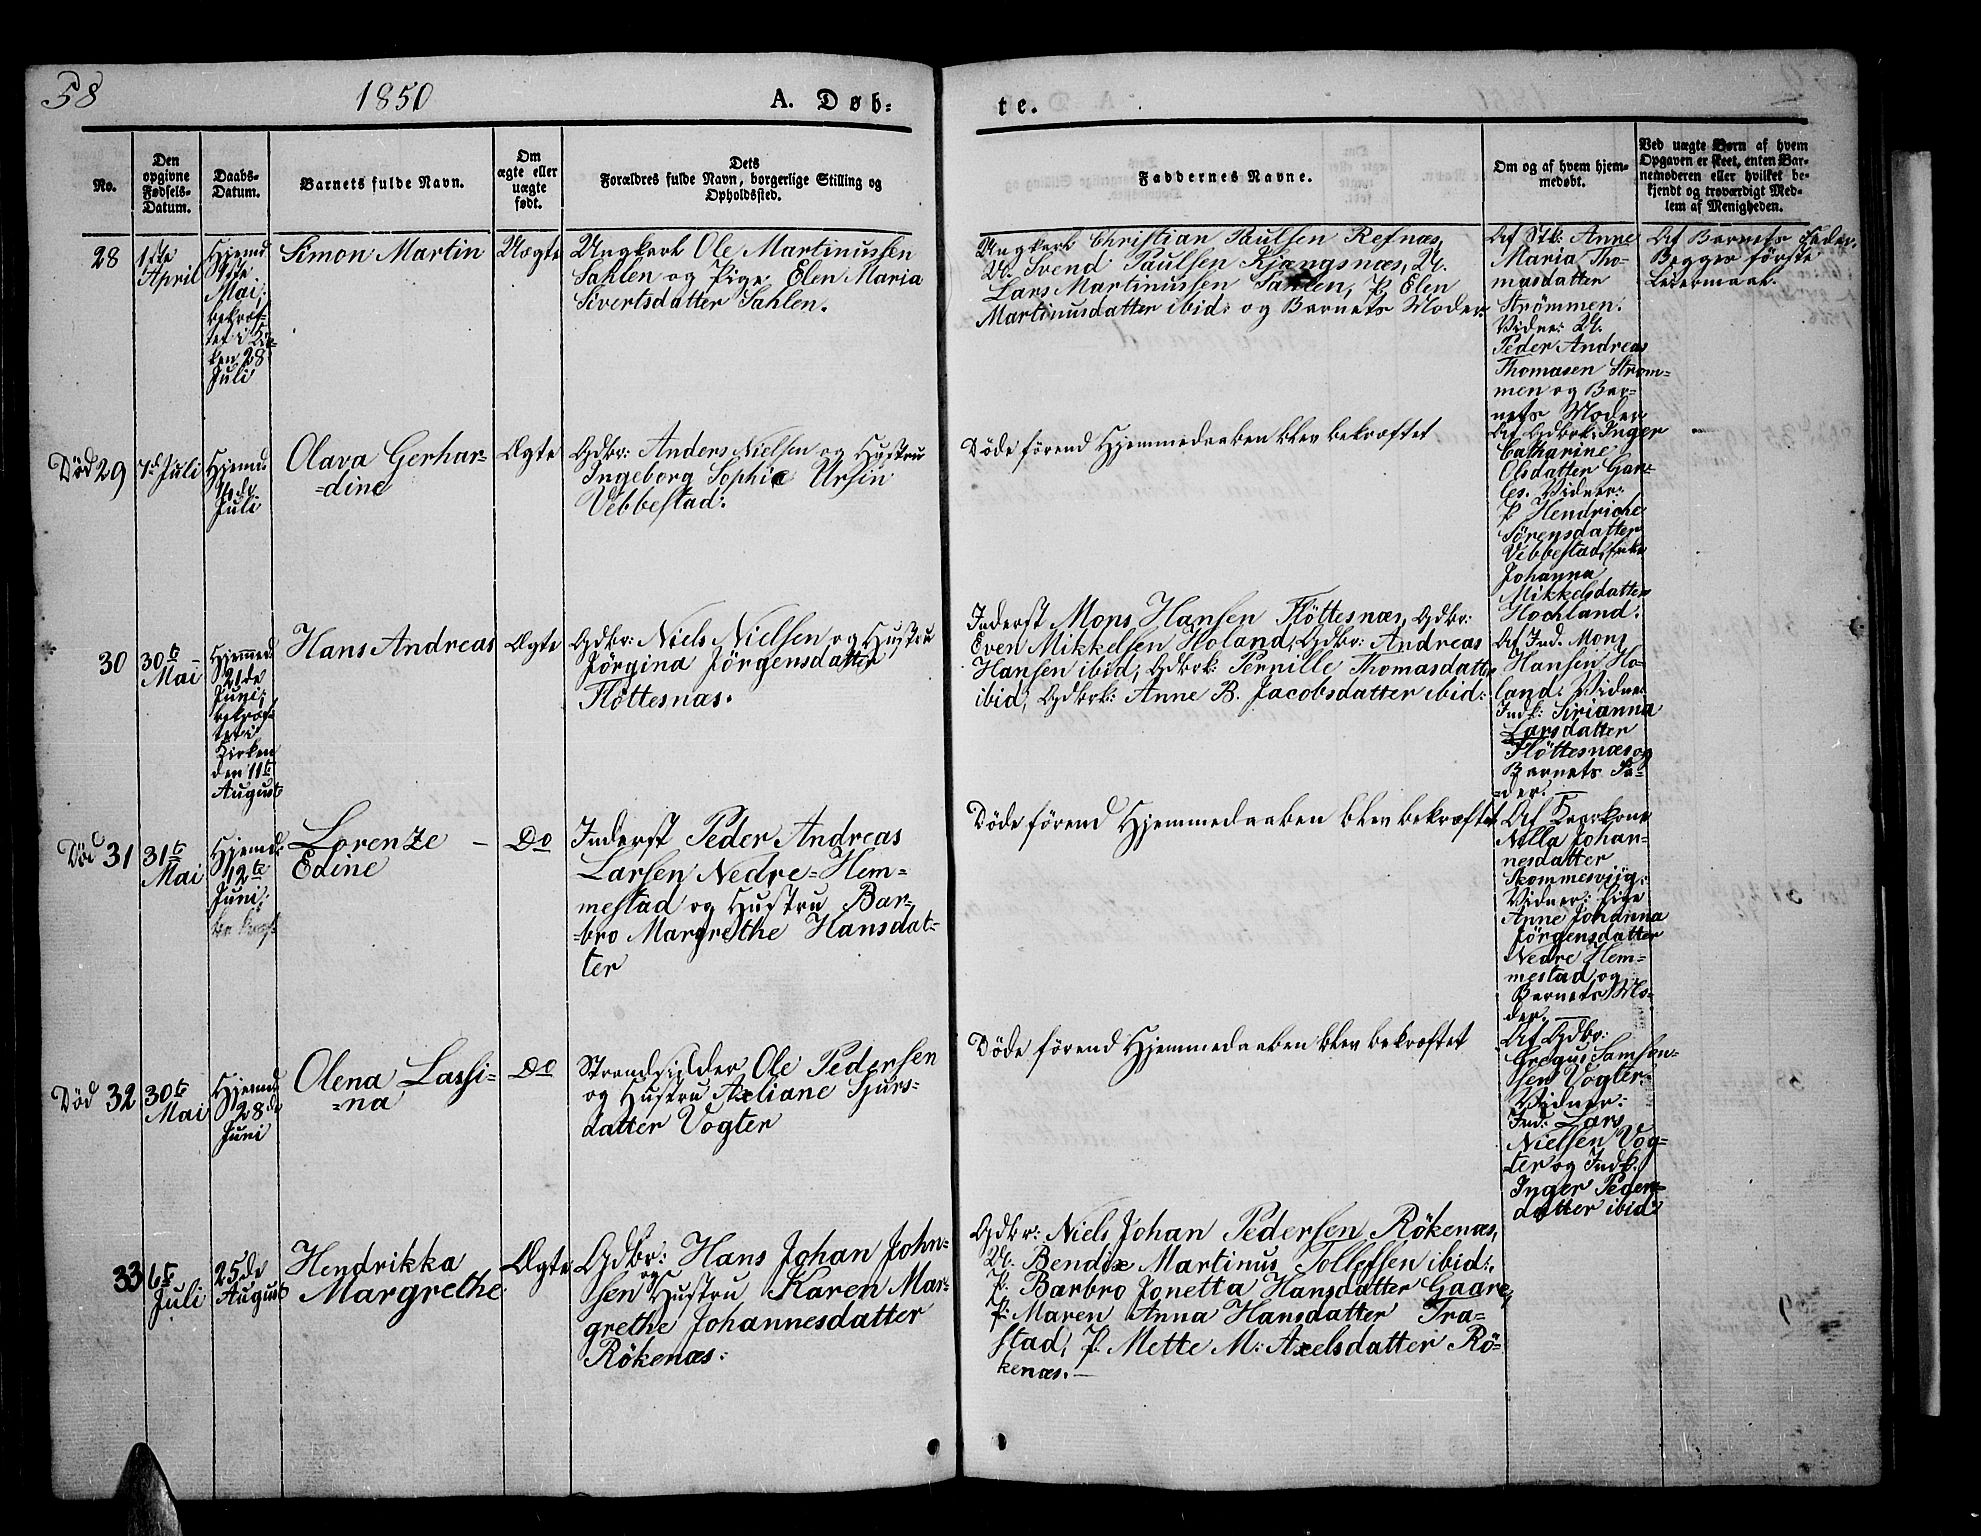 58
1850
A. Døb-
te.
No.
Den
opgivne
Fødsels-
Datum.
Daabs-
Datum.
Barnets fulde Navn.
Om
ægte eller
uægte
født.
Dets
Forældres fulde Navn, borgerlige Stilling og
Opholdssted.
Faddernes Navne.
Om og af hvem hjem-
medøbt.
Ved uægte Børn af hvem
Opgaven er skeet, enten Bar-
nemoderen eller hvilket be-
kjendt og troværdigt Med-
lem af Menigheden.
28
1ste
April
Hjemd
Mai;
bekræf-
tet i Kir-
ken 28
Juli
Simon Martin
Uægte
Ungkarl Ole Martinussen
Sahlen og Pige Elen Maria
Sivertsdatter Sahlen.
Ungkarl Christian Paulsen Refnæs,
U. Svend Paulsen Kjængsnæs, U.
Lars Martinussen Sahlen, P. Elen
Martinusdatter ibid: og Barnets Moder.
Af Stk: Anne
Maria Tho-
masdatter
Strömmen.
Vidner: U.
Peder Andreas
Thomasen Ström-
men og Bar-
nets Moder
Af Barnets Fader.
Begges første
Leiermaal.
Död 29
7d Juli
Hjemd:
Juli
Olava Gerhar-
=dine
Ægte
Gdbr: Anders Nielsen og Hustru
Ingeborg Sophie Ursin
Vebbestad:
Döde förend Hjemmedaaben blev bekræftet
Af Gdbrk: Inger
Catharine
Olsdatter Gar-
les. Vidner:
P. Hendriche
Sörensdatter
Vebbestad,
Johanna
Mikkelsdatter
Hochland:
30
30te
Mai
Hjemmed
21de
Juni;
bekræf-
tet i
Kirken
den 11te
August
Hans Andreas
Ægte
Gdbr: Niels Nielsen og Hustru
Jörgina Jörgensdatter
Flöttesnæs.
Inderst Mons Hansen Flöttesnæs, Gdbr:
Even Mikkelsen Holand, Gdbr: Andreas
Hansen ibid, Gdbrk: Pernille Thomasdatter
ibid, Gdbrk: Anne B. Jacobsdatter ibid:
Af Ind. Mons
Hansen Ho-
land: Vidner
Indk: Sirianna
Larsdatter
Flöttesnæs og
Barnets Fa-
=der.
Död 31
31te
Mai
Hjemd:
12te
Juni;
Lorenze
Edine
Do
Inderst Peder Andreas
Larsen Nedre=Hem-
mestad og Hustru Bar-
=bro Margrethe Hansdat-
ter
Döde förend Hjemmedaaben blev bekræftet
Af
Nilla Johan-
nesdatter
Skommesviig:
Vidner: Pige
Anne Johanna
Jörgensdatter
Nedre Hem=
mestad og
Barnets Mo-
der.
Död 32
30te
Mai
Hjemd
28de
Juni
Olena Lassi-
=na
Do
Strandsidder Ole Pedersen
og Hustru Axliane Sjurs-
datter Vogter
Döde förend Hjemmedaaben blev bekræftet
Af Gdbr:
Gregus Samson-
sen Vogter.
Vidner:
Ind: Lars
Nielsen Vog=
ter og Indk.
Inger Peders-
datter ibid:
33
6te
Juli
25de
August
Hendrikka
Margrethe
Ægte
Gdbr: Hans Johan John-
sen og Hustru Karen Mar-
grethe Johannesdatter
Rökenæs:
Gdbr: Niels Johan Pedersen Rökenæs,
U. Bendix Martinus Tollefsen ibid:,
P. Barbro Jonetta Hansdatter Gaare,
P. Maren Anna Hansdatter Tra-
stad, P. Mette M: Axelsdatter Rö-
kenæs.